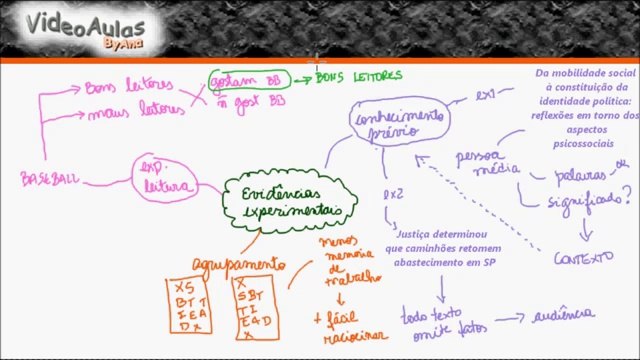 VideoAulas
By Ana
Bons leitores
maus leitores
gostam BB
ñ gost BB
BONS LEITORES
BASEBALL
exp.
leitura
Evidências
experimentais
conhecimento
prévio
ex1
Da mobilidade social
à constituição da
identidade política:
reflexões em torno dos
aspectos
psicossociais
pessoa
média
palavras, ok
significado?
CONTEXTO
ex2
Justiça determinou
que caminhões retomem
abastecimento em SP
todo texto
omite fatos
audiência
agrupamento
XS
BTT
IEA
Dx
X
SBT
TI
EAD
X
menos
memoria
de
trabalho
+ fácil
raciocinar